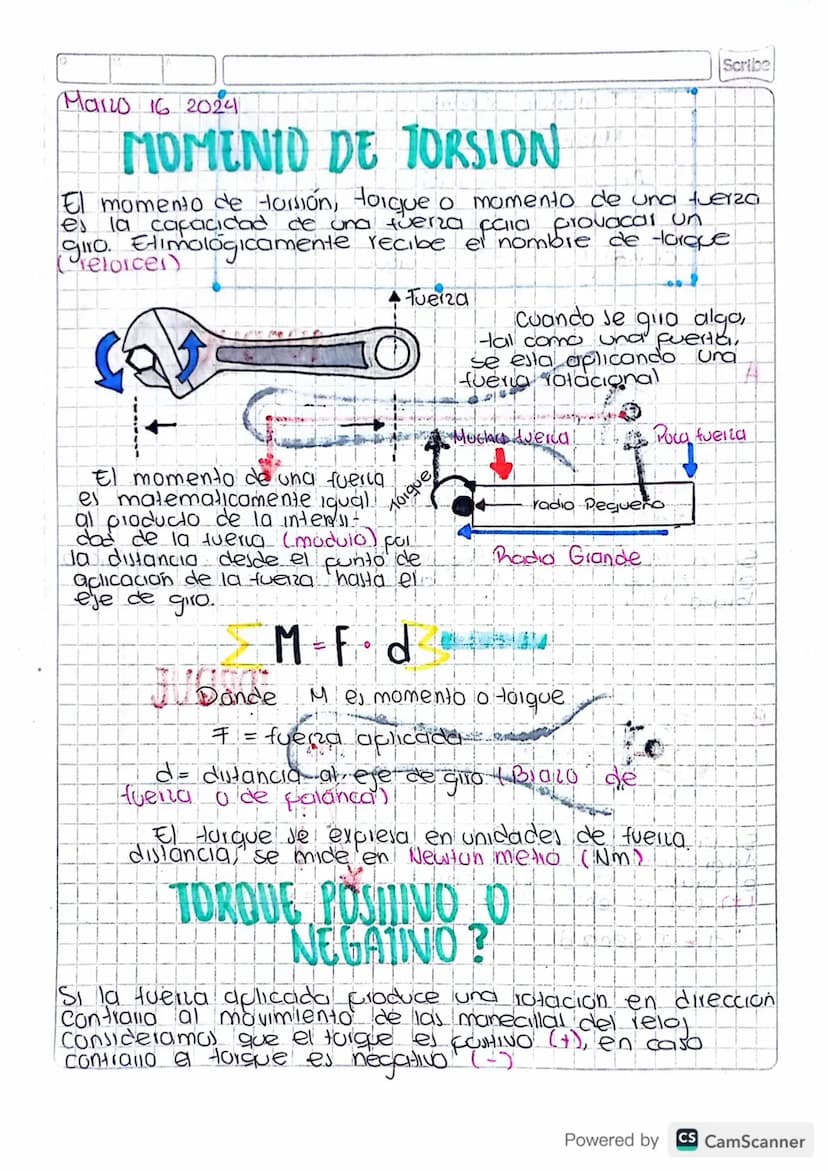 Scribe
Marzo 16 2024
MOMENTO DE TORSION
El momento de torsión, torque o momento de una fuerza
es la capacidad de una fuerza para provocar un
giro. Etimológicamente recibe el nombre de torque
(retorcer)
Fuerza
Cuando se gira algo,
tal como una puerta,
se esta aplicando una
fuerza rotacional
Mucha fuerza
Poca fuerza
Torque
radio Pequeño
Radio Grande
El momento de una fuerza
es matematicamente igual
al producto de la intensi-
dad de la fuerza (modulo) por
la distancia desde el punto de
aplicacion de la fuerza hasta el
eje de giro.
Σ M = F · d
Donde M es momento o torque
F = fuerza aplicada
d = distancia al eje de giro (Brazo de
fuerza o de palanca)
El torque se expresa en unidades de fuerza
distancia, se mide en Newton metro (Nm)
TORQUE POSITIVO O
NEGATIVO?
Si la fuerza aplicada produce una rotacion en direccion
contrario al movimiento de las manecillas del reloj
consideramos que el torque es positivo (+), en caso
contrario el torque es negativo (-)
Powered by CS CamScanner